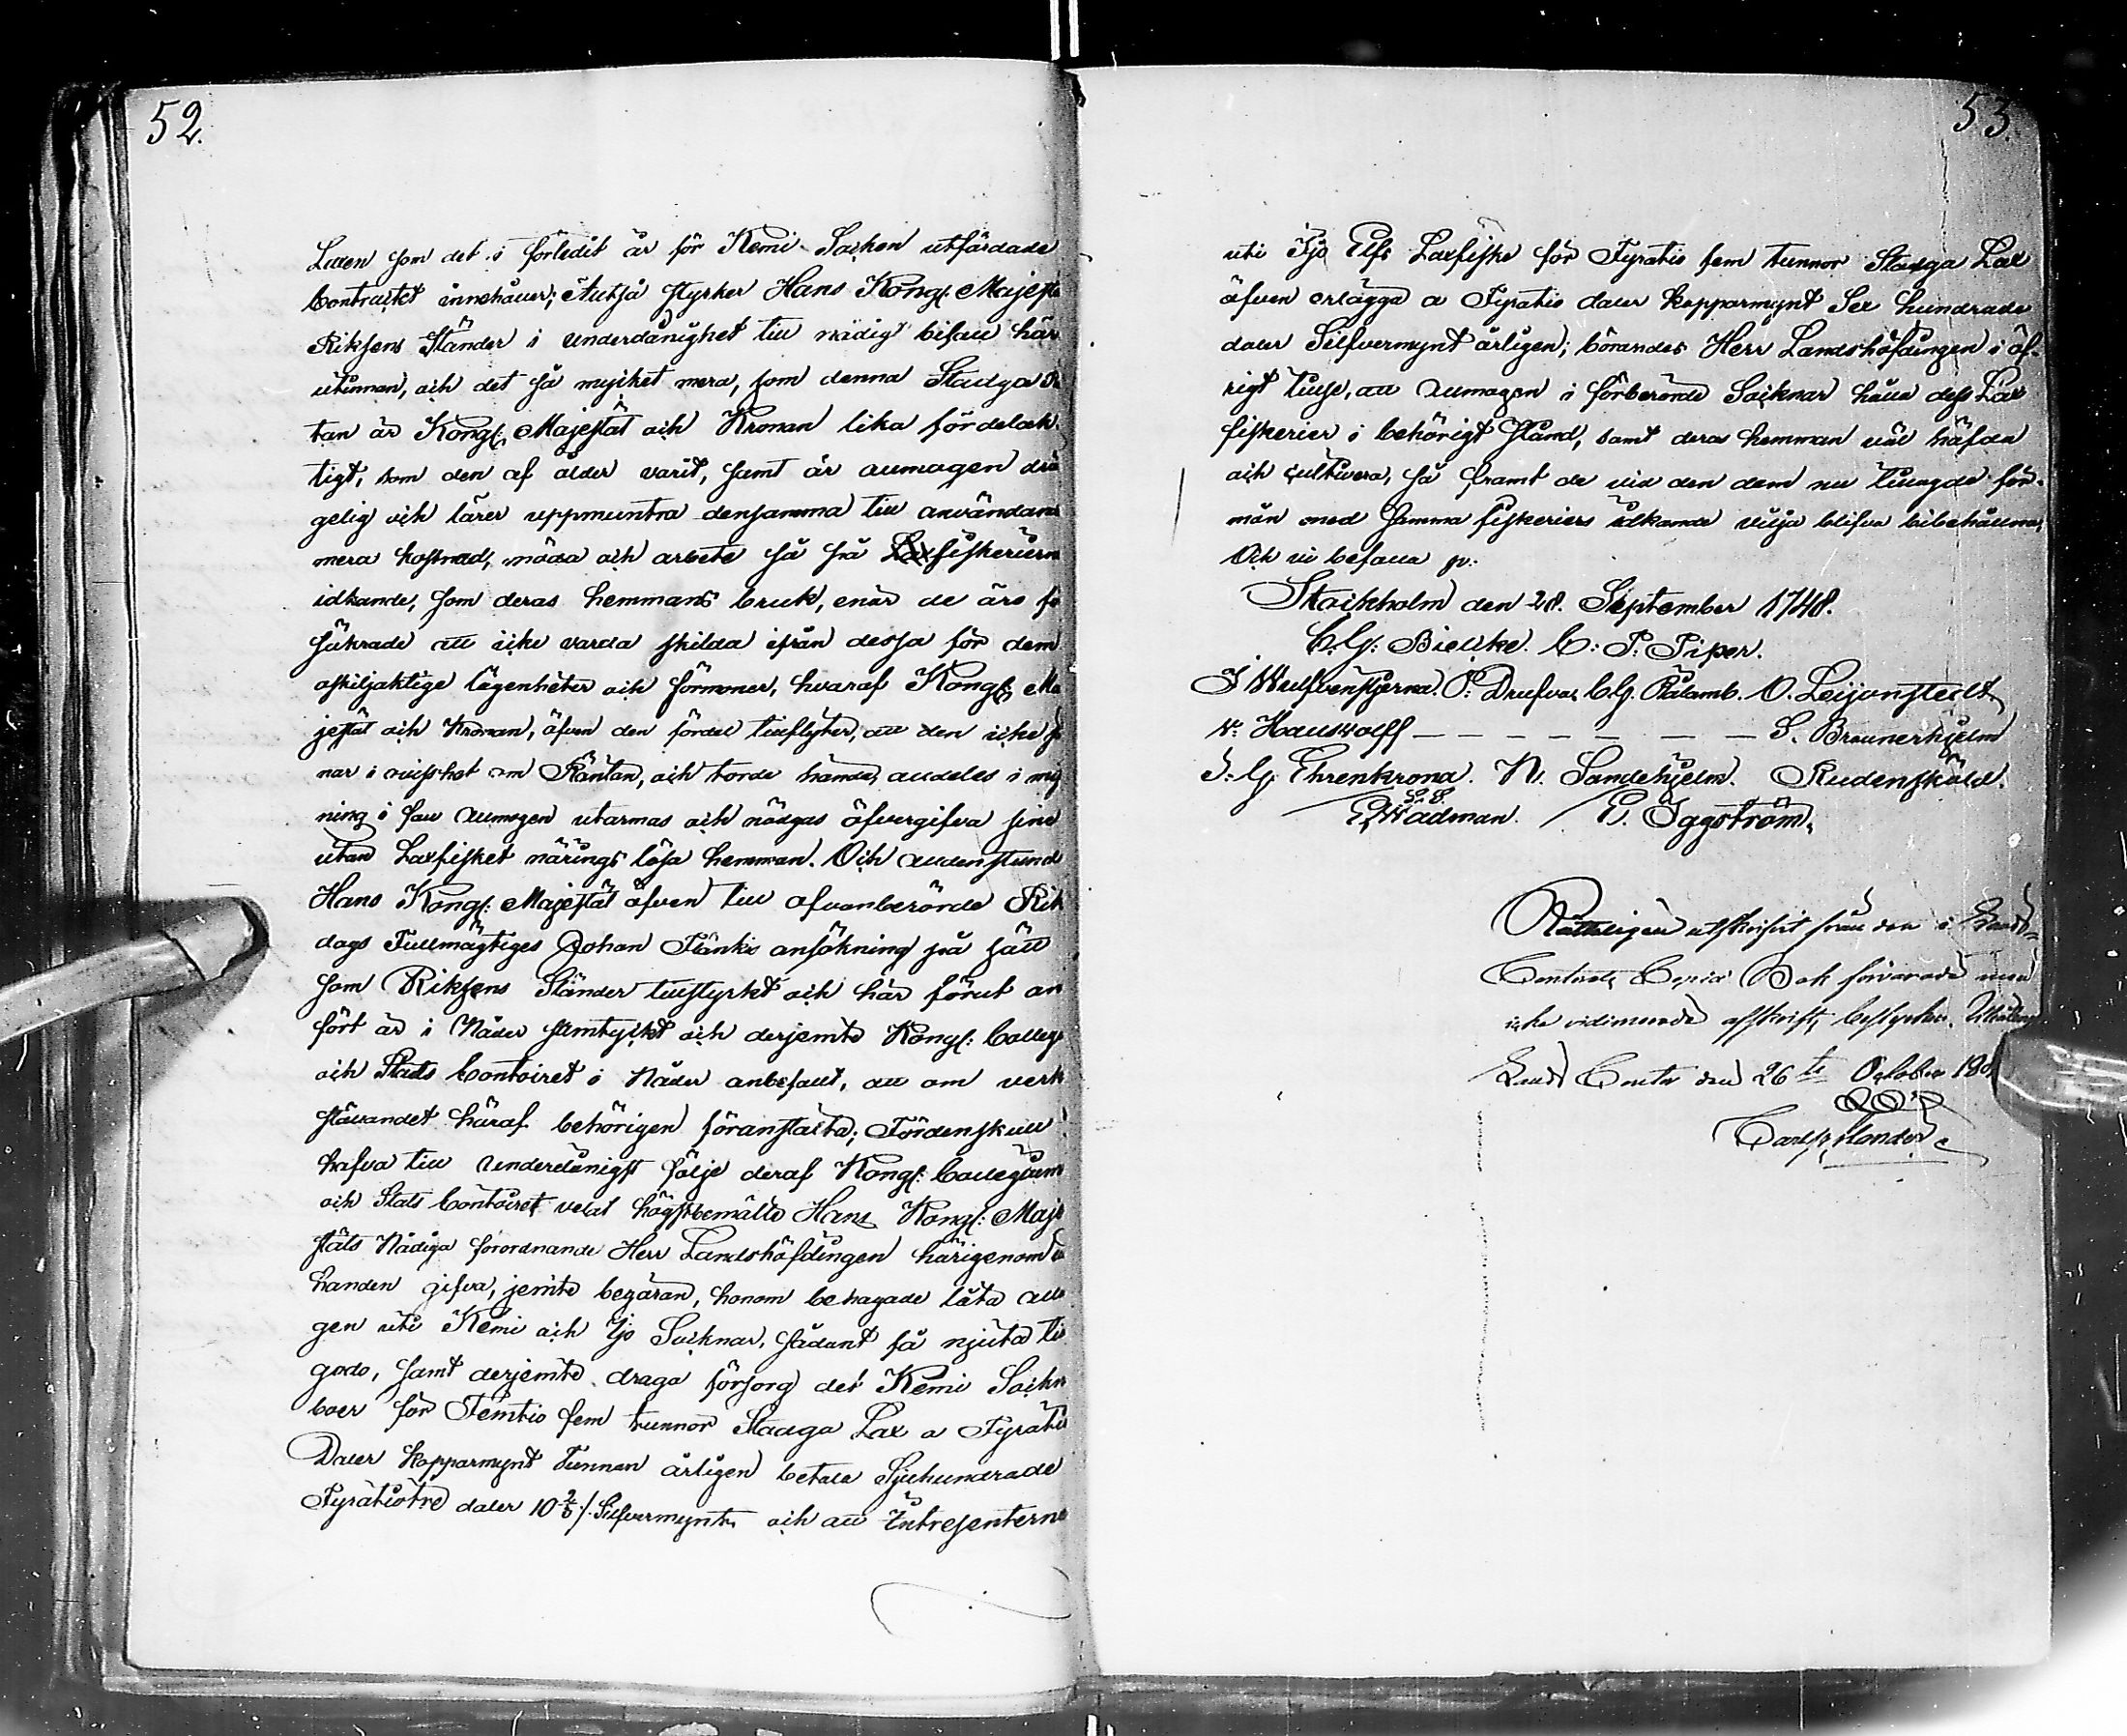 52.
Laxen som det i förledit år för Kemi Socken utfärdade
Contractet innehåller; Altså styrker Hans Kongl: Majest
Riksens Ständer i underdånighet till nådigt bifall här
utinnan, och det så mycket mera, som denna Stadga
tan är Kongl: Majestät och Kronan lika fördelak
tigt, som den af ålder varit, samt är allmogen drä
gelig och lärer uppmuntra densamma till användan
mera kostnad, möda och arbete så på Laxfiskeriern
idkande, som deras hemmans bruk, enär de äro fö
säkrade att icke varda skilda ifrån dessa för dem
oskiljaktige lägenheter och förmoner, hvaraf Kongl: Ma
jestät och Kronan, äfven den fördel tillflyter, att den icke
nar i ovisshet om Räntan, och torde hända, alldeles i mi
ning i fall Allmogen utarmas och nödgas öfvergifva sine
utan Laxfisket närings lösa hemman. Och alldenstund
Hans Kongl: Majestät äfven till ofvanberörde Rik
dags Fullmägtiges Johan Flänkis ansökning på sätt
som Riksens Ständer tillstyrkt och här förut an
fört är i Nåder samtyckt och derjemte Kongl: Colleg
och Stats Contoiret i Nåder anbefallt, att om verk
ställandet häraf behörigen föranstalta; Fördenskull
hafva till underdånigst följe deraf Kongl: Collegium
och Stats Contoiret velat högstbemälte Hans Kongl: Maje
stäts Nådiga förordnande Herr Landshöfdingen härigenom
handen gifva, jemte begäran, honom behagade låta Allm
gen uti Kemi och Ijo Socknar, sådant få njuta til
godo, samt derjemte draga försorg det Kemi Sockn
boer för Femtio fem tunnor Stadga Lax a Fyratio
Daler Kopparmynt Tunnan årligen betala Sjuhundrade
Fyratiotre daler 10 2/3 /. Silfvermynt och att Intressenterne
53.
uti Ijo Elfs Laxfiske för Fyratio fem tunnor Stadga Lax
äfven erlägga a Fyratio daler kopparmynt Sex hundrade
daler Silfvermynt årligen; börandes Herr Landshöfdingen i öf-
rigt tillse, att Allmogen i förberörde Socknar hålla dess Lax
fiskerier i behörigt stånd, samt deras hemman väl häfda
och cultivera, så framt de vid den dem nu tillagde för-
mån med samma fiskeriers idkande vilja blifva bibehållna,
Och vi befalla p.
Stockholm den 28. September 1748.
C. G: Bielke. C: F: Piper.
J Wulfvenstjerna. P: Drufva. C. G. Rålamb. O. Leijonstedt
v: Hauswolff — — — — — — — S. Braunerhjelm
J: G. Ehrenkrona. N. Sandehjelm. Rudensköld.
L. S.
E, Wadman. E. Iggström,
Rätteligen utskrifvit från den i Lands-
Contorets Copiæ Bok förvarade men
icke vidimerade afskrift, bestyrker. Uleåborgs
Lands Contor den 26te October 180
Carl